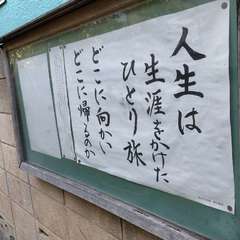 人生は
生涯をかけた
ひとり旅
どこに向かい
どこに帰るのか